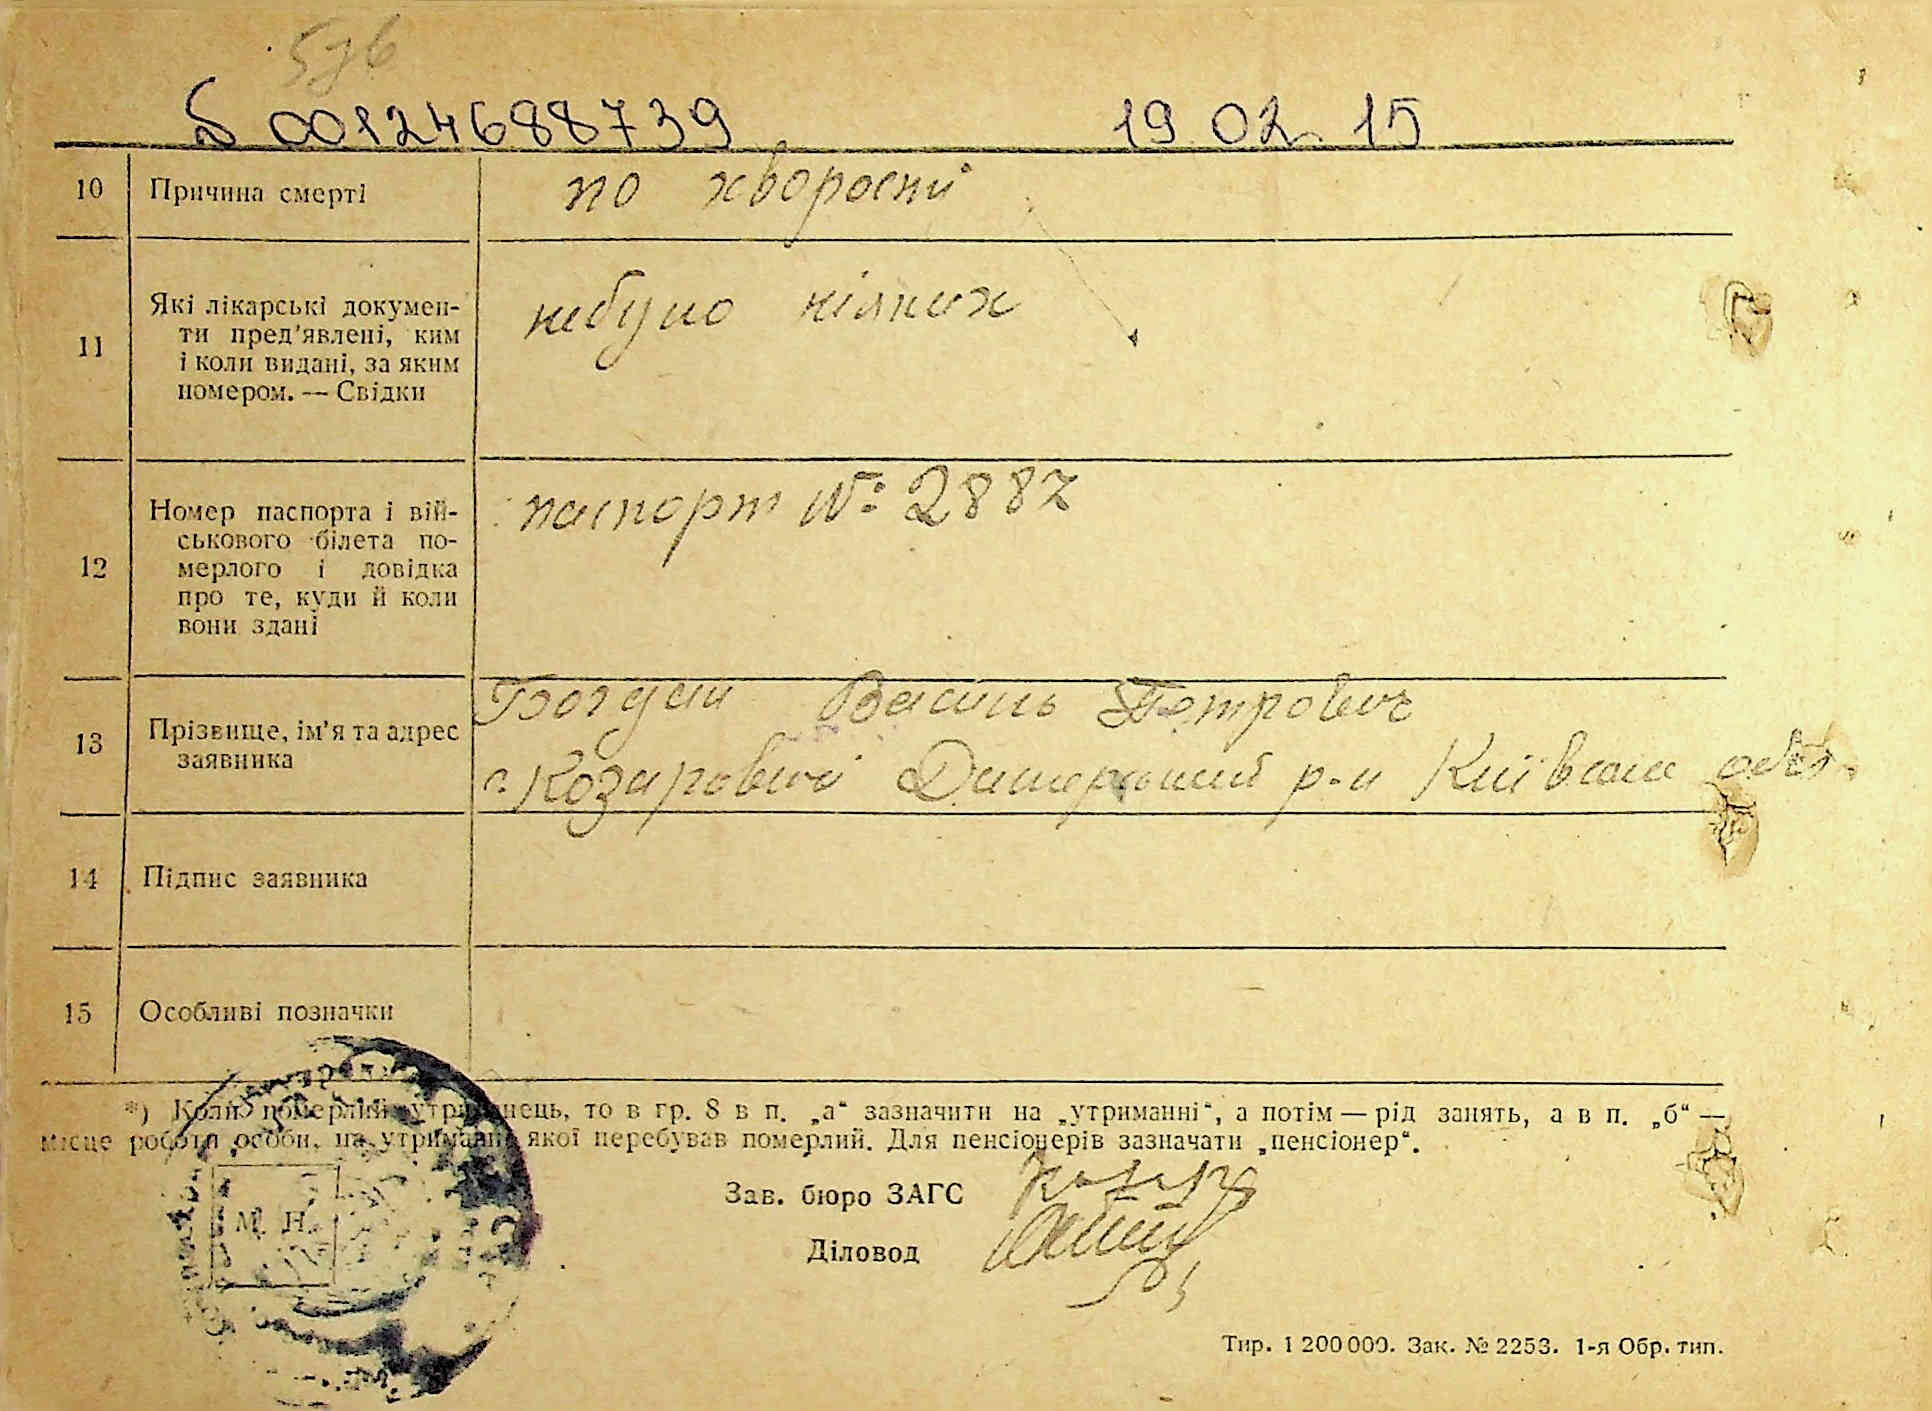 576
00124688739 19 02 15
10 Причина смерті по хворости
11 Які лікарські докумен-
ти пред'явлені, ким
і коли видані, за яким
номером. — Свідки
небуло ніяких
12 Номер паспорта і вій-
ськового білета по-
мерлого і довідка
про те, куди й коли
вони здані
паспорт №: 2887
13 Прізвище, ім'я та адрес
заявника
Богдан Василь Петрович
с. Козаровичі Димерський р-н Київська обл.
14 Підпис заявника
15 Особливі позначки
*) Коли померлий утриманець, то в гр. 8 в п. „а“ зазначити на „утриманні“, а потім — рід занять, а в п. „б“ —
місце роботи особи, на утриманні якої перебував померлий. Для пенсіонерів зазначати „пенсіонер“.
Зав. бюро ЗАГС
М. П.
Діловод
Тир. 1 200 000. Зак. № 2253. 1-я Обр. тип.